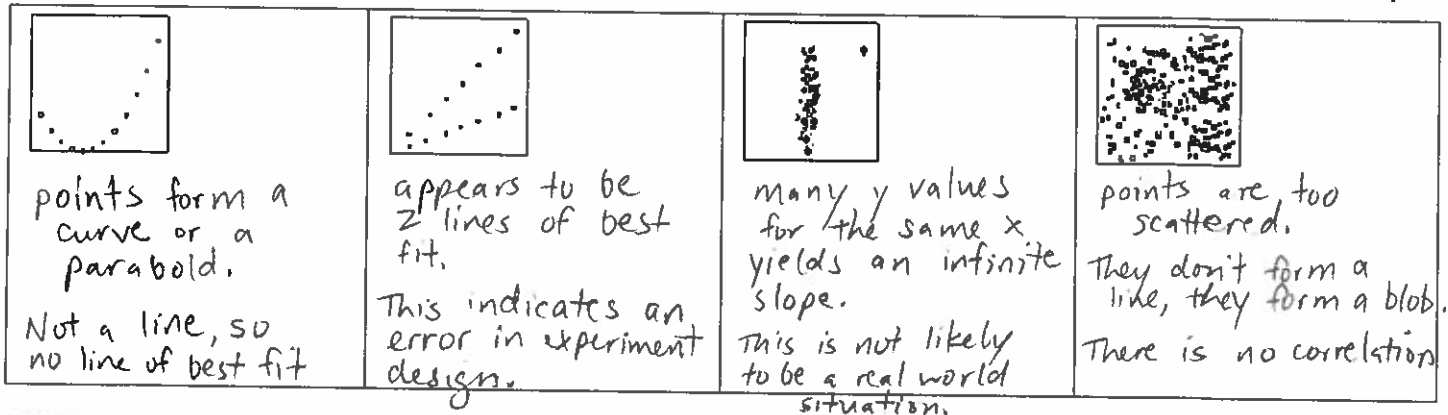 points form a
curve or a
parabold.
Not a line, so
no line of best fit
appears to be
2 lines of best
fit.
This indicates an
error in experiment
design.
many y values
for the same x
yields an infinite
slope.
This is not likely
to be a real world
situation.
points are too
scattered.
They don't form a
line, they form a blob.
There is no correlation